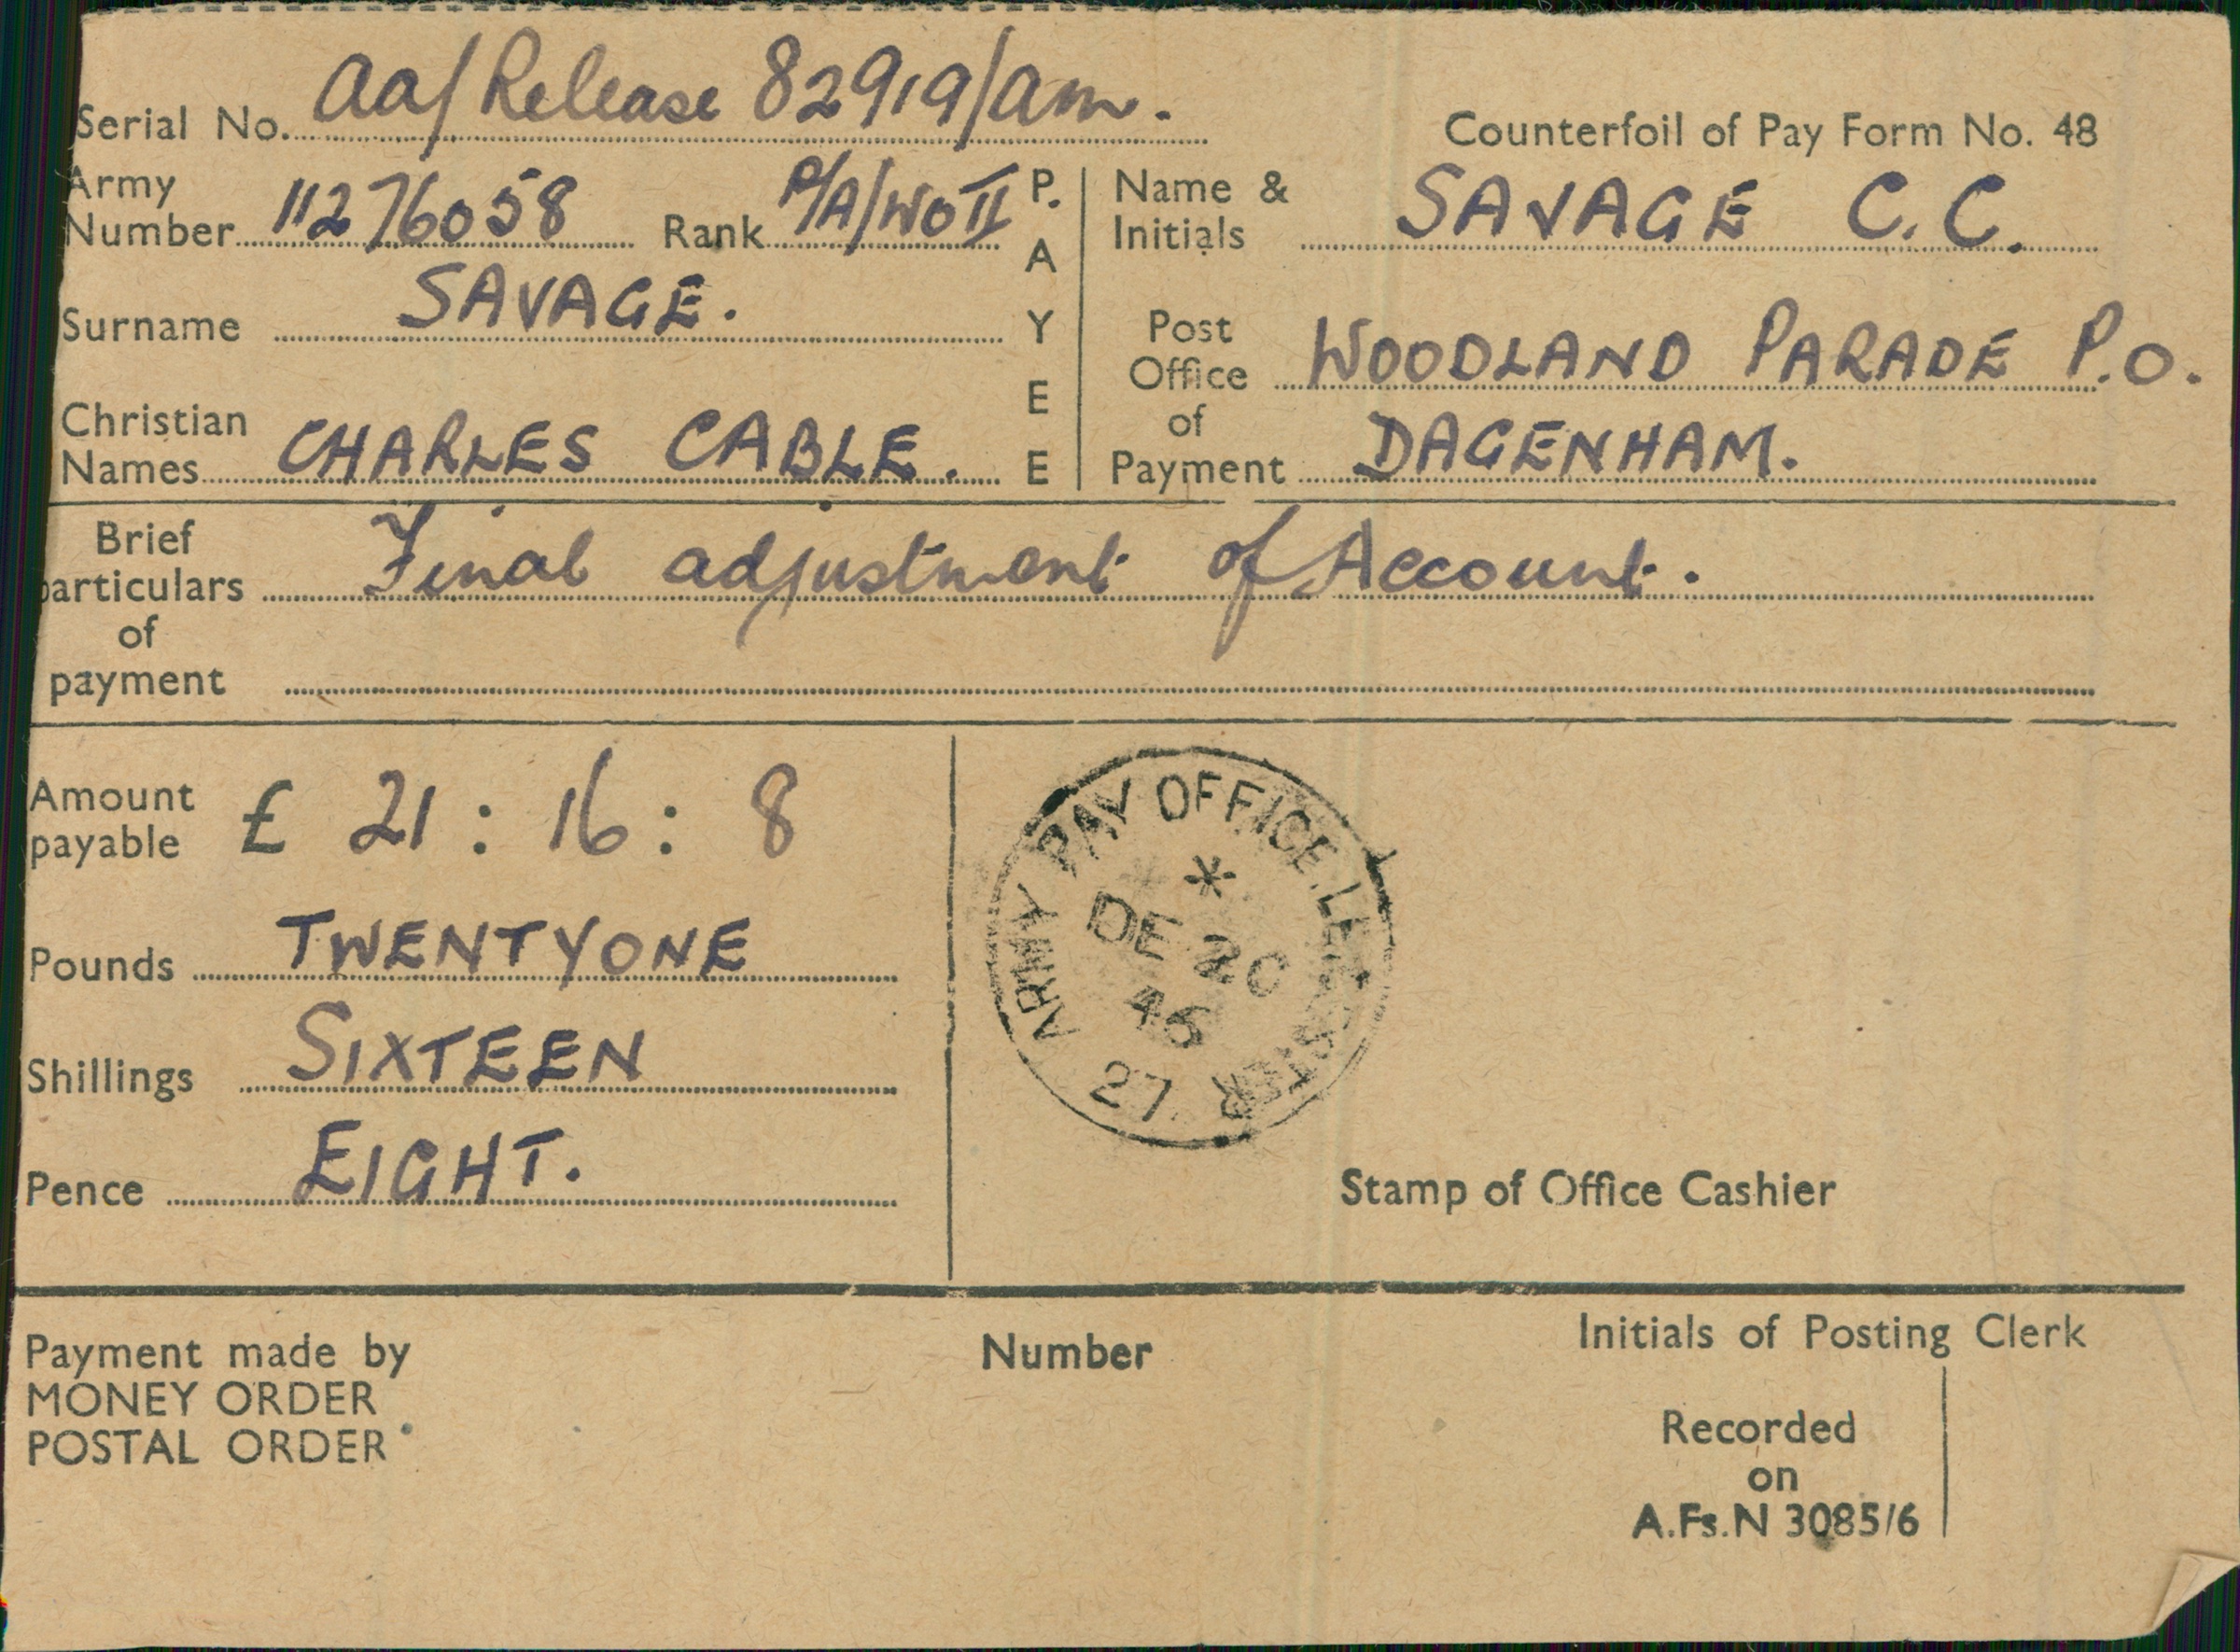 Serial No. aa/Release 82919/am.
Counterfoil of Pay Form No. 48
Army
Number 11276058 Rank P/A/WO II
Surname SAVAGE.
Christian
Names CHARLES CABLE.
P.
A
Y
E
E
Name &
Initials SAVAGE C.C.
Post
Office WOODLAND PARADE P.O.
of
Payment DAGENHAM.
Brief
particulars Final adjustment of Account.
of
payment
Amount
payable £ 21 : 16 : 8
Pounds TWENTYONE
Shillings SIXTEEN
Pence EIGHT.
ARMY PAY OFFICE. LEICESTER
*
DE 20
46
27
Stamp of Office Cashier
Payment made by
MONEY ORDER
POSTAL ORDER
Number
Initials of Posting Clerk
Recorded
on
A.Fs.N 3085/6